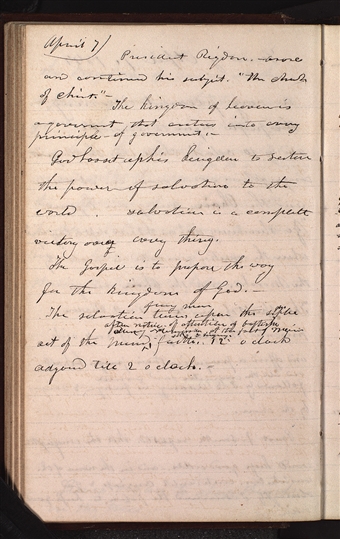 April 7/
President Rigdon. arose
and continued his subject. "the church
of christ."
The kingdom of heaven is
a government that enters into every
principle of government.
God has set up his kingdom to restore
the power of salvation to the
world. salvation is a complete
victory over every thing.
The Gospel is to prepare the way
for the kingdom of God.
of every man
The salvation turns upon the
act of the 12 o'clock
adjourned till 2 o'clock.